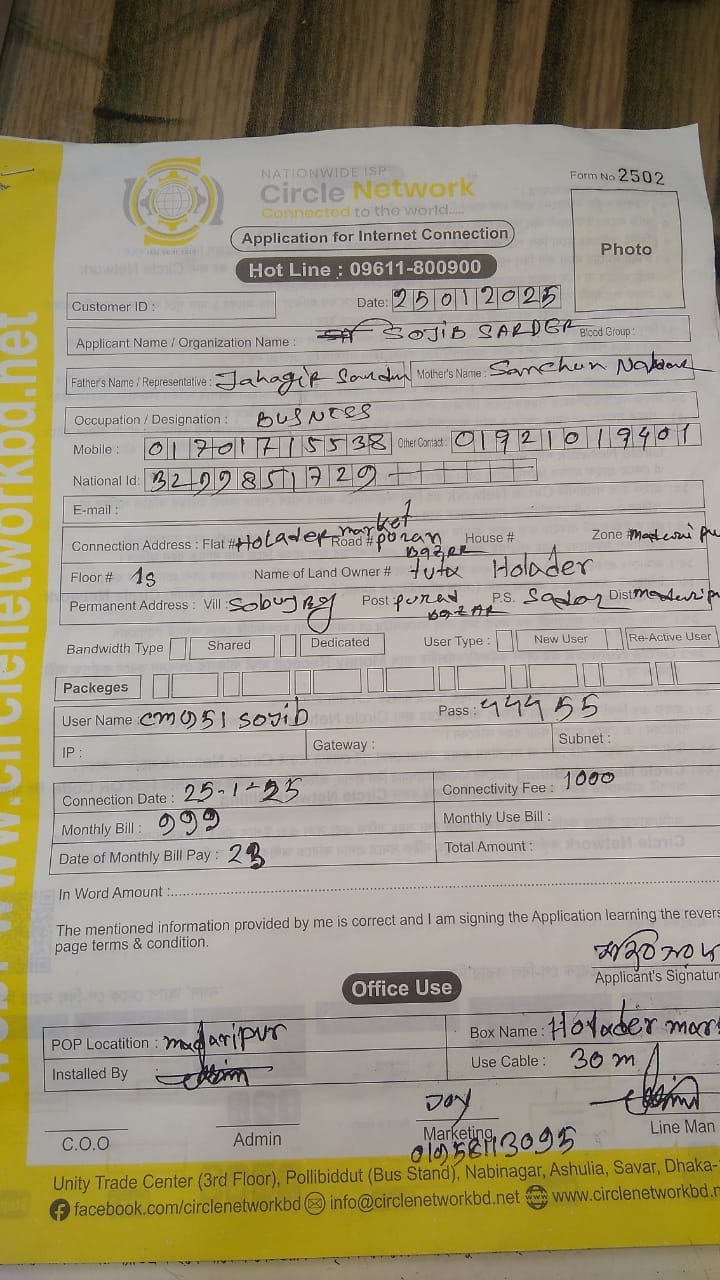 NATIONWIDE ISP
Circle Network
Connected to the world....
Form No 2502
Application for Internet Connection
Photo
Hot Line : 09611-800900
Customer ID :
Date: 25012025
Applicant Name / Organization Name : SOJIB SARDER Blood Group :
Father's Name / Representative : Jahagir Sardar Mother's Name :
Occupation / Designation : BUSNTES
Mobile : 01701715538 Other Contact : 01921019401
National Id:
E-mail :
Connection Address : Flat # Holader market Road # poran BAZAR House # Zone #
Floor # 1s Name of Land Owner # tuta Holader
Permanent Address : Vill : Post BAZAR P.S. Sador Dist
Bandwidth Type Shared Dedicated User Type : New User Re-Active User
Packeges
User Name : cm951 sojib Pass : 44455
IP : Gateway : Subnet :
Connection Date : 25-1-25 Connectivity Fee : 1000
Monthly Bill : 999 Monthly Use Bill :
Date of Monthly Bill Pay : Total Amount :
In Word Amount :
The mentioned information provided by me is correct and I am signing the Application learning the revers
page terms & condition.
Applicant's Signatur
Office Use
POP Locatition : madaripur Box Name : Holader mar
Installed By Use Cable : 30 m
C.O.O Admin Joy Marketing Line Man
01958113095
Unity Trade Center (3rd Floor), Pollibiddut (Bus Stand), Nabinagar, Ashulia, Savar, Dhaka-
facebook.com/circlenetworkbd info@circlenetworkbd.net www.circlenetworkbd.n